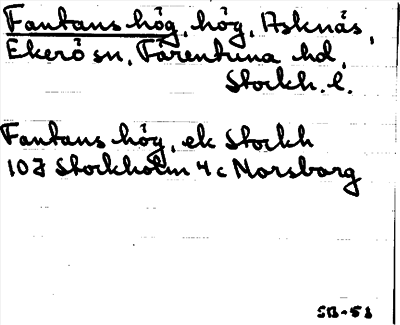 Fantans hög, hög, Asknäs,
Ekerö sn, Färentuna hd,
Stockh. l.
Fantans hög, ek Stockh
10I Stockholm 4c Norsborg
SB-51